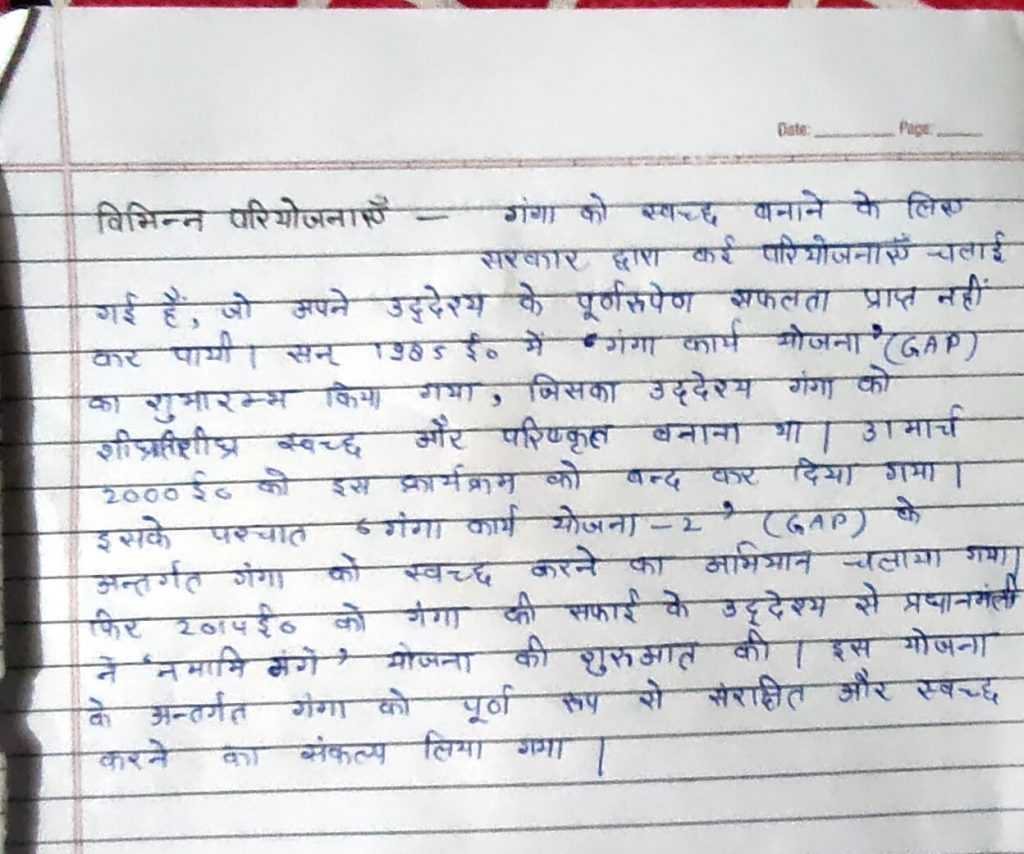 Date: Page:
विभिन्न परियोजनाएँ — गंगा को स्वच्छ बनाने के लिए
सरकार द्वारा कई परियोजनाएँ चलाई
गई हैं, जो अपने उद्देश्य के पूर्णरुपेण सफलता प्राप्त नहीं
कर पायी। सन् 1985 ई० में 'गंगा कार्य योजना' (GAP)
का शुभारम्भ किया गया, जिसका उद्देश्य गंगा को
शीघ्रतिशीघ्र स्वच्छ और परिष्कृत बनाना था। 31 मार्च
2000 ई० को इस कार्यक्रम को बन्द कर दिया गया।
इसके पश्चात 'गंगा कार्य योजना -2' (GAP) के
अन्तर्गत गंगा को स्वच्छ करने का अभियान चलाया गया।
फिर 2014 ई० को गंगा की सफाई के उद्देश्य से प्रधानमंत्री
ने 'नमामि गंगे' योजना की शुरुआत की। इस योजना
के अन्तर्गत गंगा को पूर्ण रूप से संरक्षित और स्वच्छ
करने का संकल्प लिया गया।